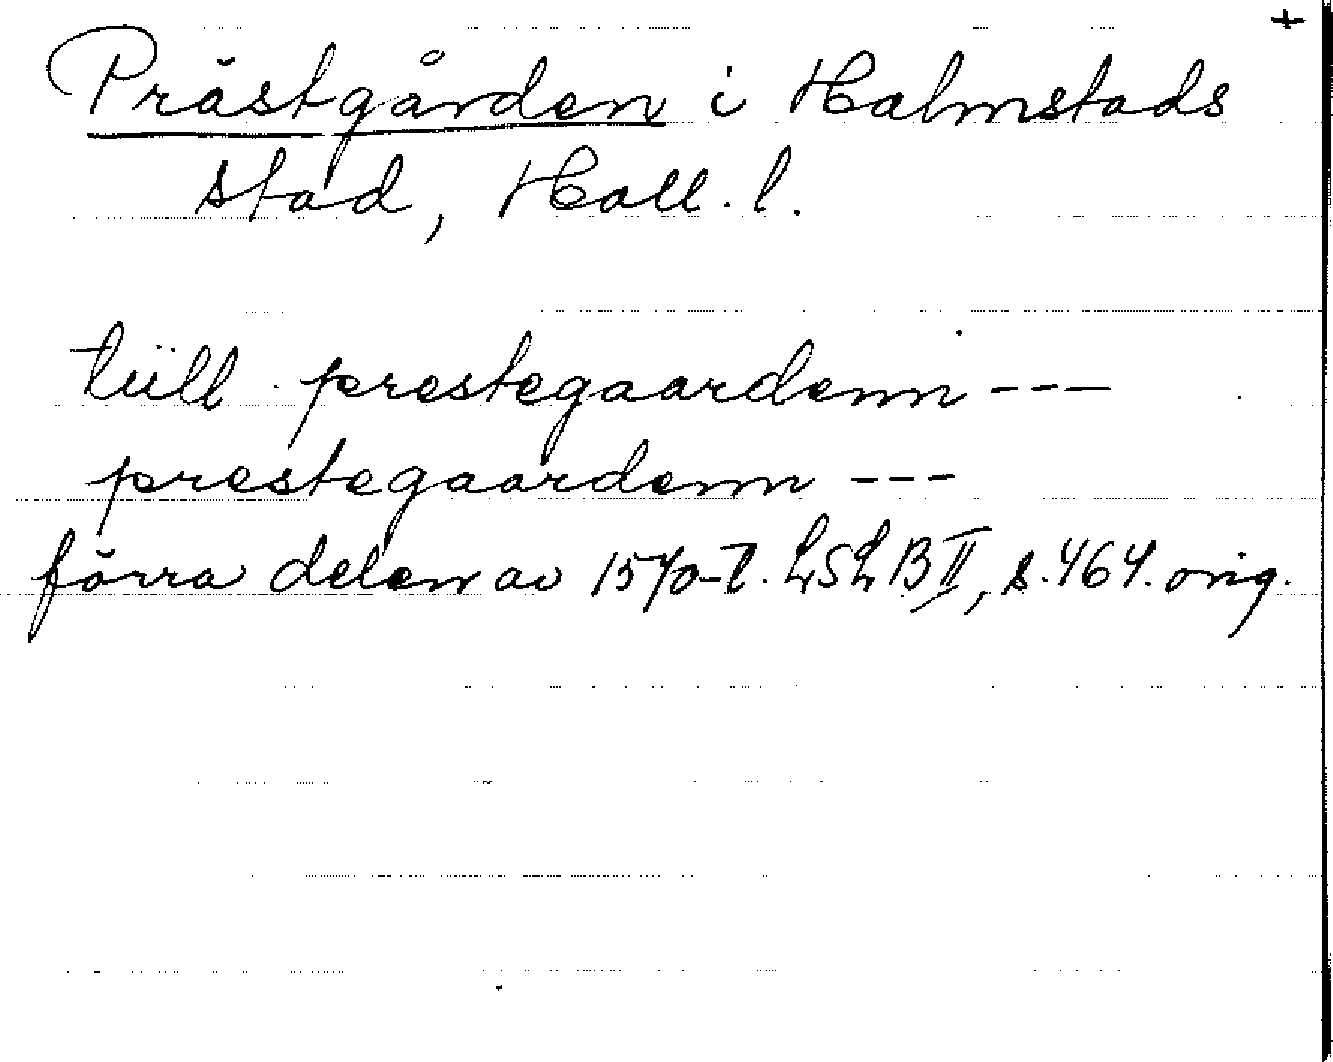 +
Prästgården i Halmstads
stad, Hall. l.
tiill prestegaardenn ---
prestegaardenn ---
förra delen av 1570-t. LSLB II, s. 464. orig.